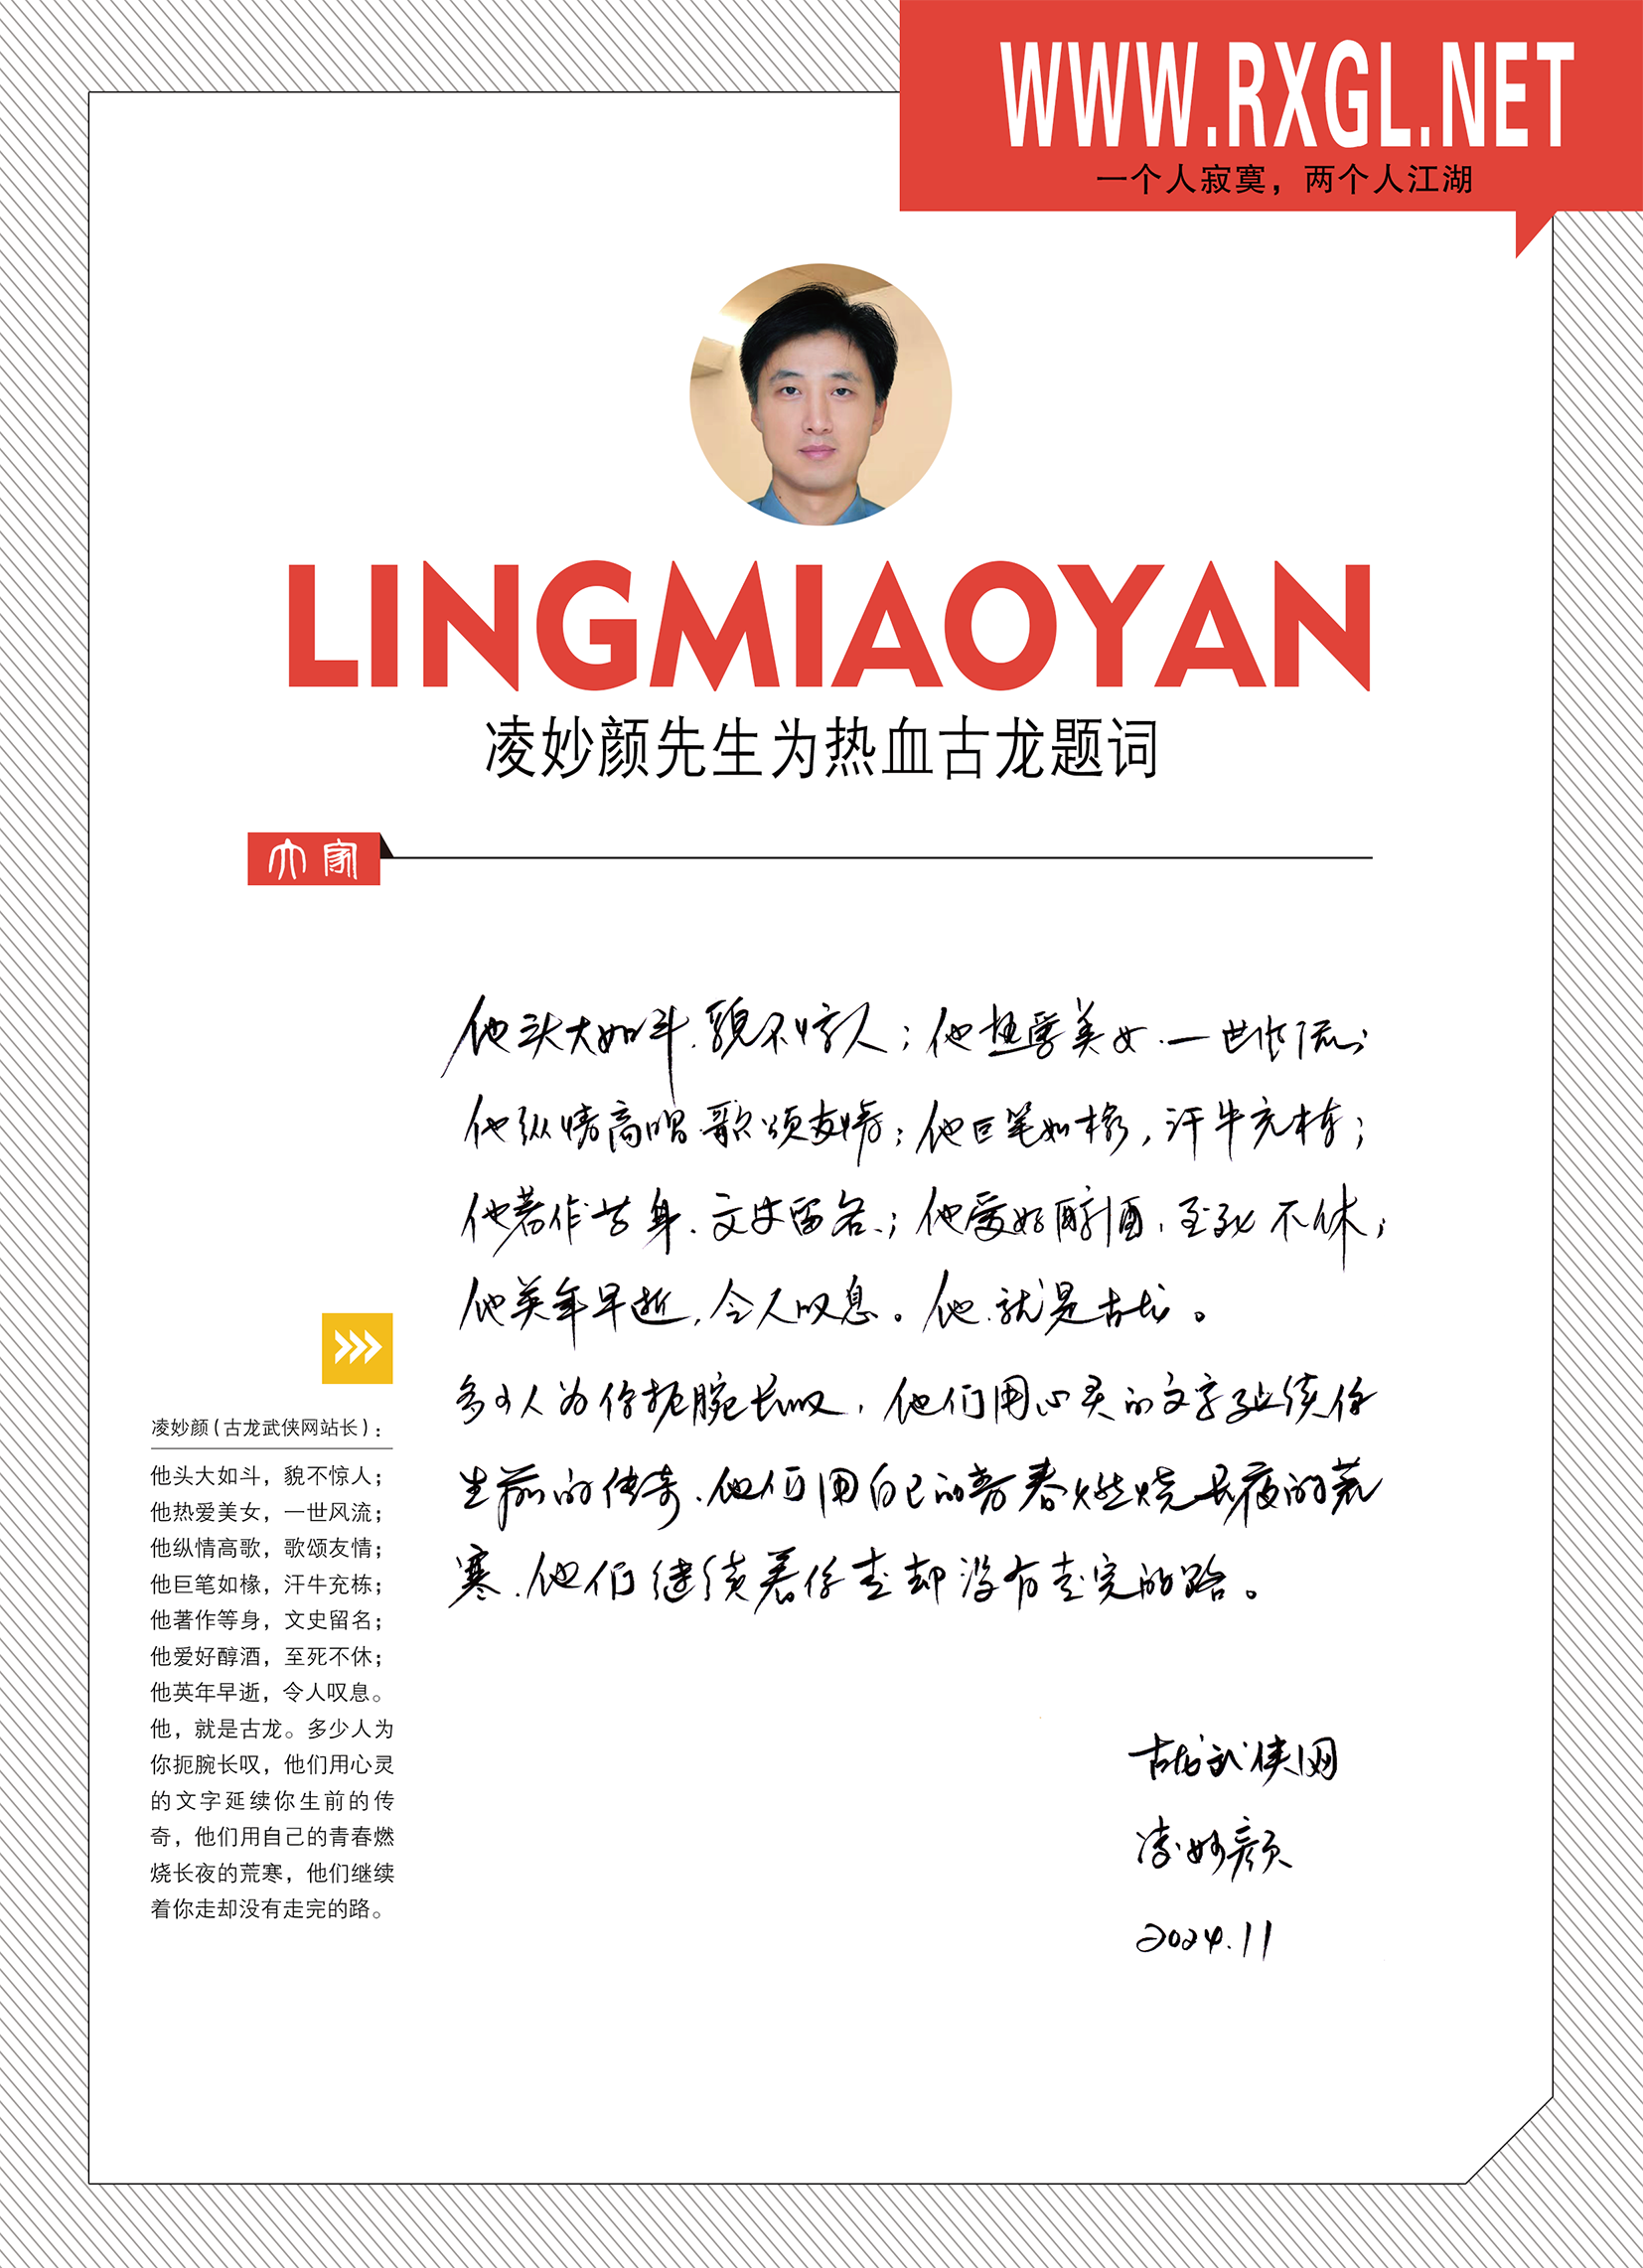 WWW.RXGL.NET
一个人寂寞，两个人江湖
LINGMIAOYAN
凌妙颜先生为热血古龙题词
大家
他头大如斗，貌不惊人；他热爱美女，一世风流；
他纵情高唱，歌颂友情；他巨笔如椽，汗牛充栋；
他著作等身，文史留名；他爱好醇酒，至死不休；
他英年早逝，令人叹息。他，就是古龙。
多少人为你扼腕长叹，他们用心灵的文字延续你
生前的传奇，他们用自己的青春燃烧长夜的荒
寒，他们继续着你走却没有走完的路。
古龙武侠网
凌妙颜
2024.11
凌妙颜（古龙武侠网站长）：
他头大如斗，貌不惊人；
他热爱美女，一世风流；
他纵情高歌，歌颂友情；
他巨笔如椽，汗牛充栋；
他著作等身，文史留名；
他爱好醇酒，至死不休；
他英年早逝，令人叹息。
他，就是古龙。多少人为
你扼腕长叹，他们用心灵
的文字延续你生前的传
奇，他们用自己的青春燃
烧长夜的荒寒，他们继续
着你走却没有走完的路。